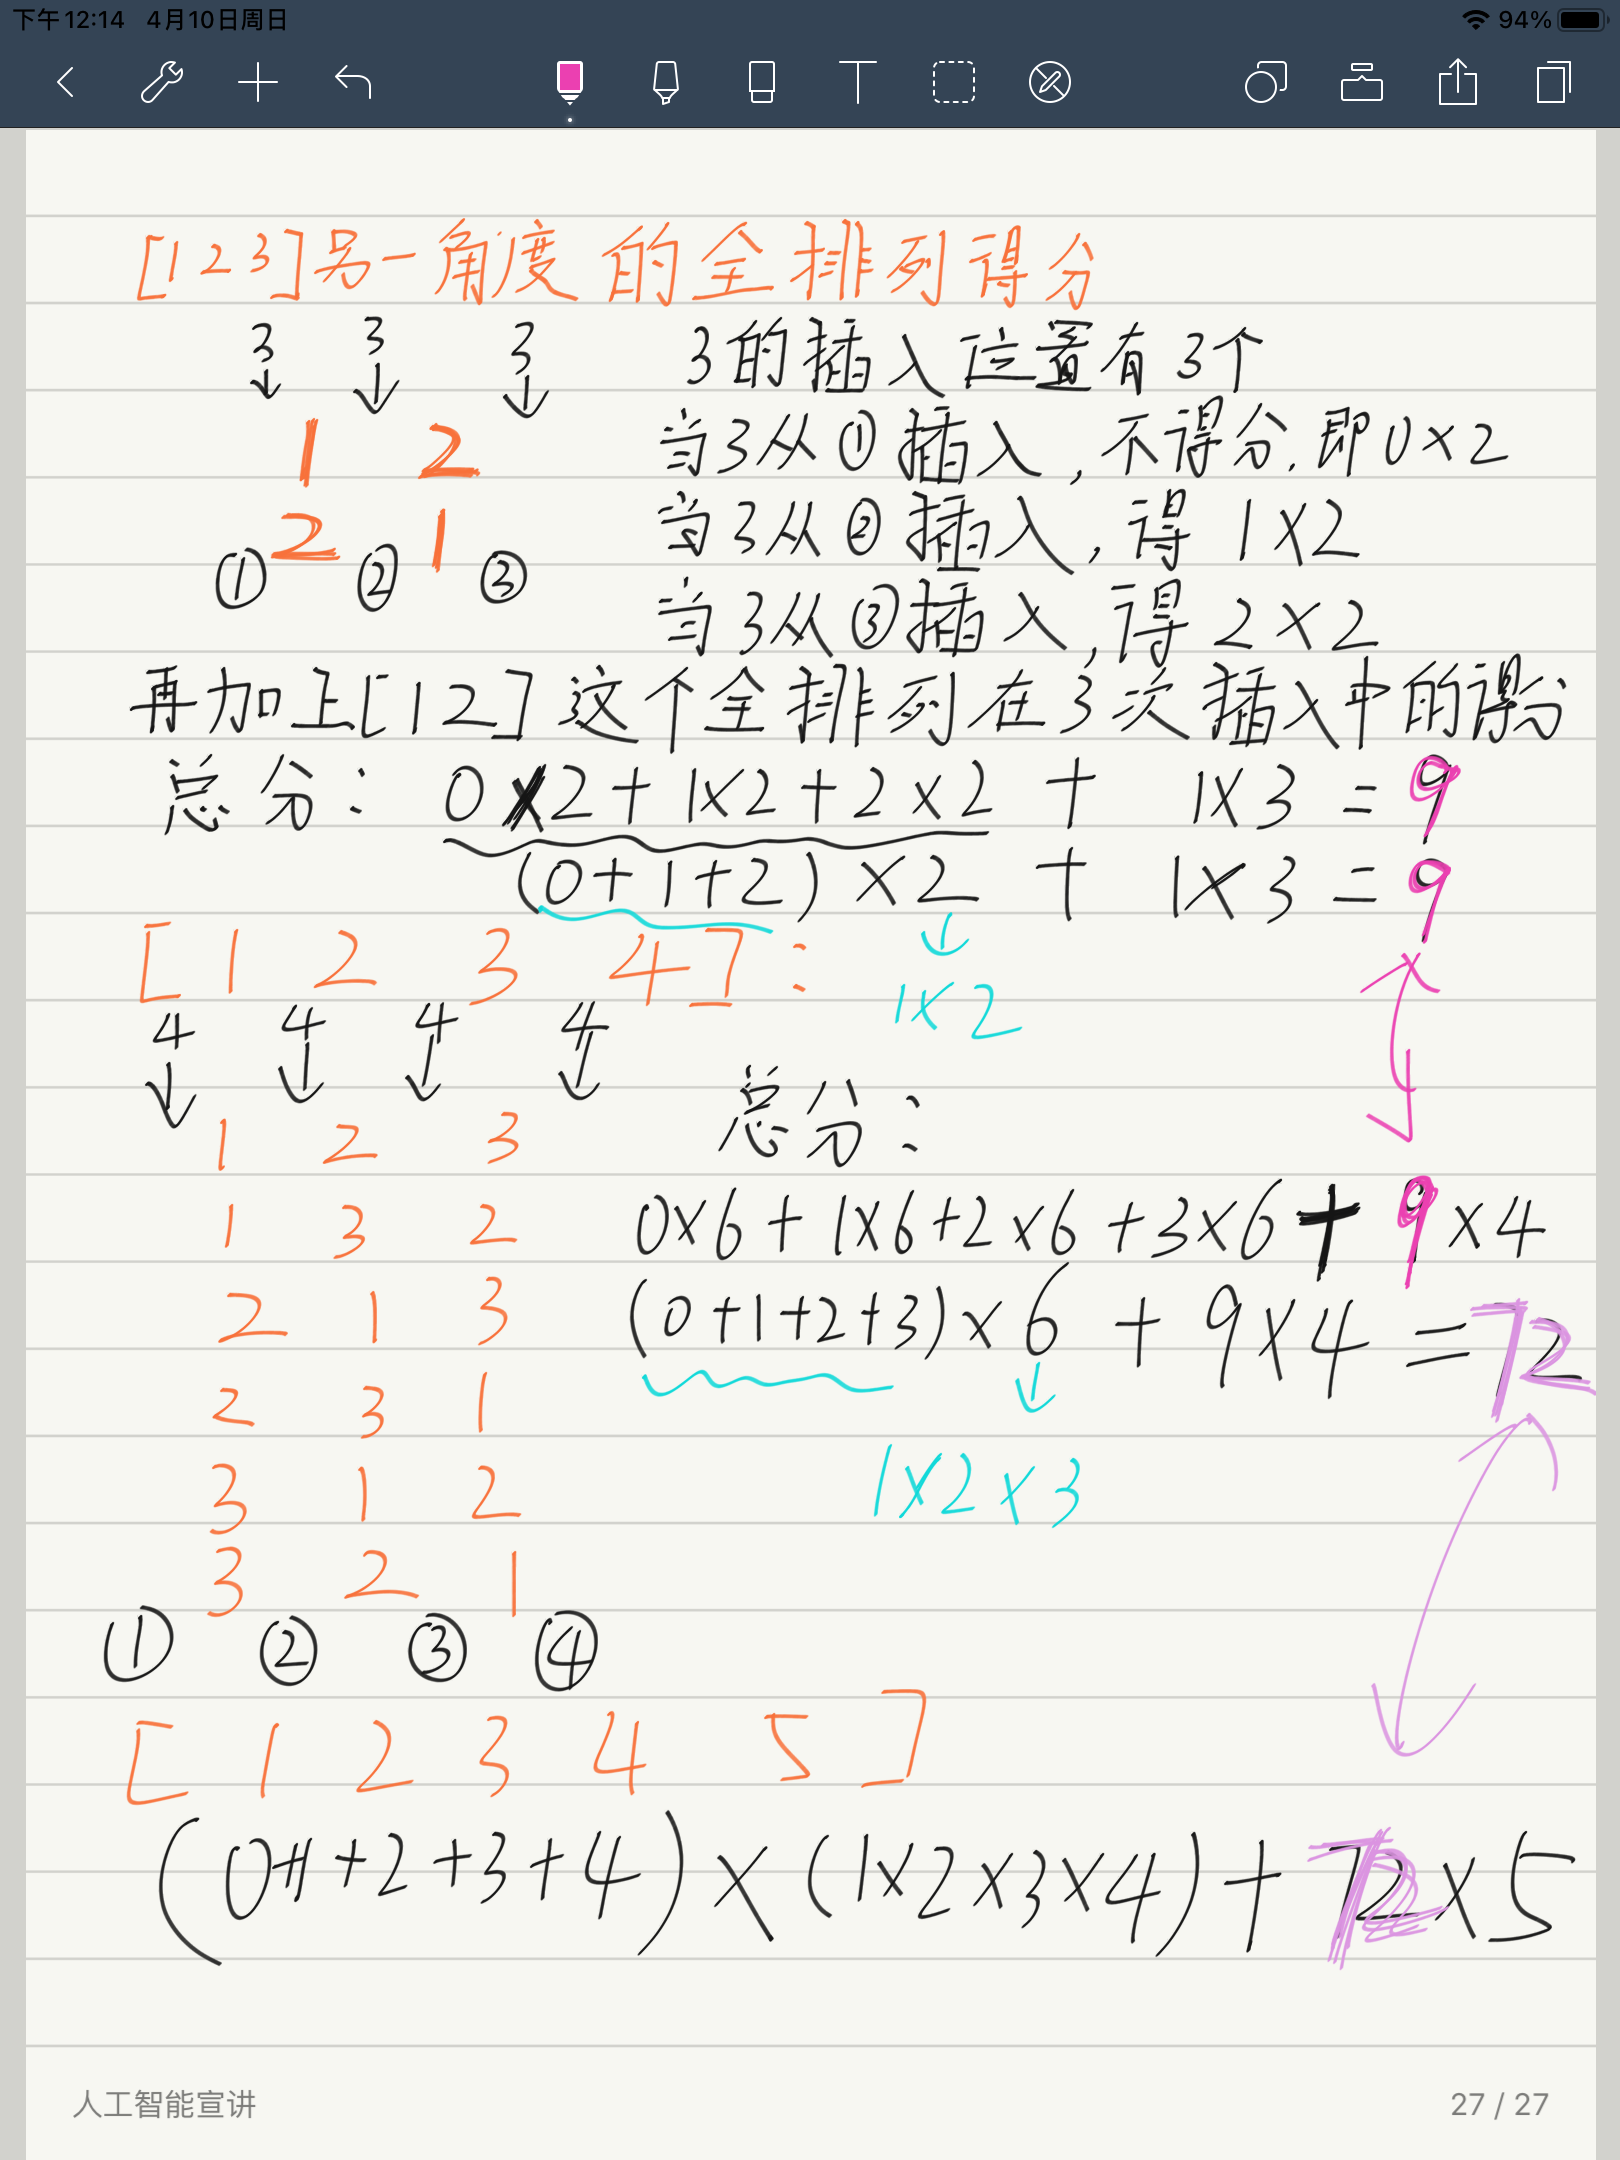 下午12:14 4月10日周日
94%
[1 2 3]另一角度的全排列得分
3 3 3
3的插入位置有3个
1 2
当3从①插入,不得分,即0×2
2 1
当3从②插入,得 1×2
① ② ③
当3从③插入,得 2×2
再加上[12]这个全排列在3次插入中的得分
总分: 0×2+1×2+2×2 + 1×3 =9
(0+1+2)×2 + 1×3=9
[1 2 3 4]:
1×2
4 4 4 4
总分:
1 2 3
1 3 2
0×6+1×6+2×6+3×6+9×4
2 1 3
(0+1+2+3)×6 + 9×4 =72
2 3 1
3 1 2
1×2×3
3 2 1
① ② ③ ④
[1 2 3 4 5]
(0+1+2+3+4)×(1×2×3×4)+72×5
人工智能宣讲
27 / 27